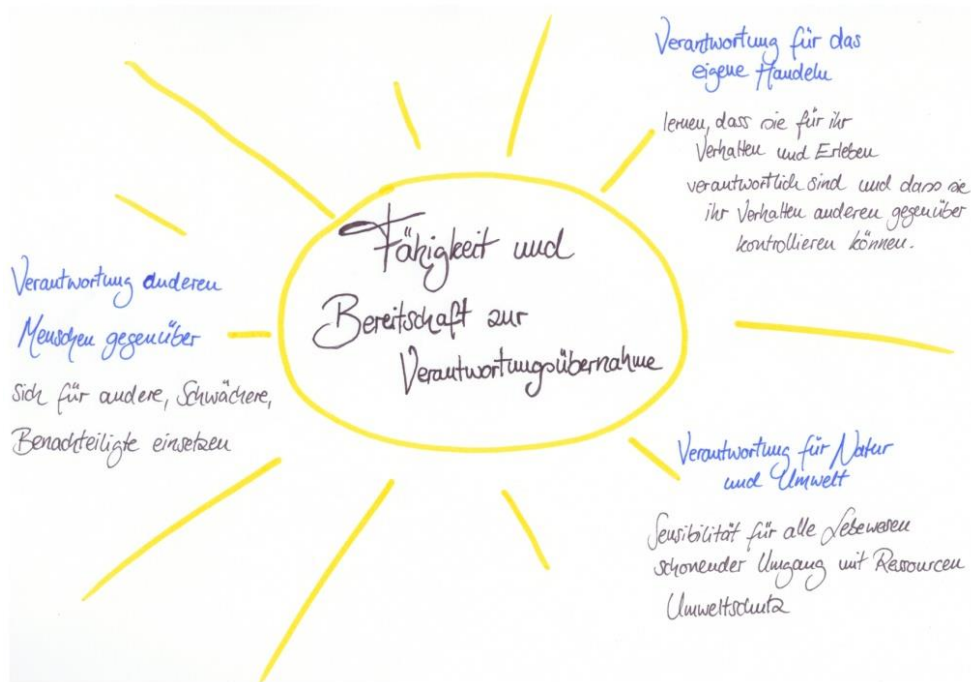 Fähigkeit und
Bereitschaft zur
Verantwortungsübernahme
Verantwortung für das
eigene Handeln
lernen, dass sie für ihr
Verhalten und Erleben
verantwortlich sind und dass sie
ihr Verhalten anderen gegenüber
kontrollieren können.
Verantwortung anderen
Menschen gegenüber
sich für andere, Schwächere,
Benachteiligte einsetzen
Verantwortung für Natur
und Umwelt
Sensibilität für alle Lebewesen
schonender Umgang mit Ressourcen
Umweltschutz